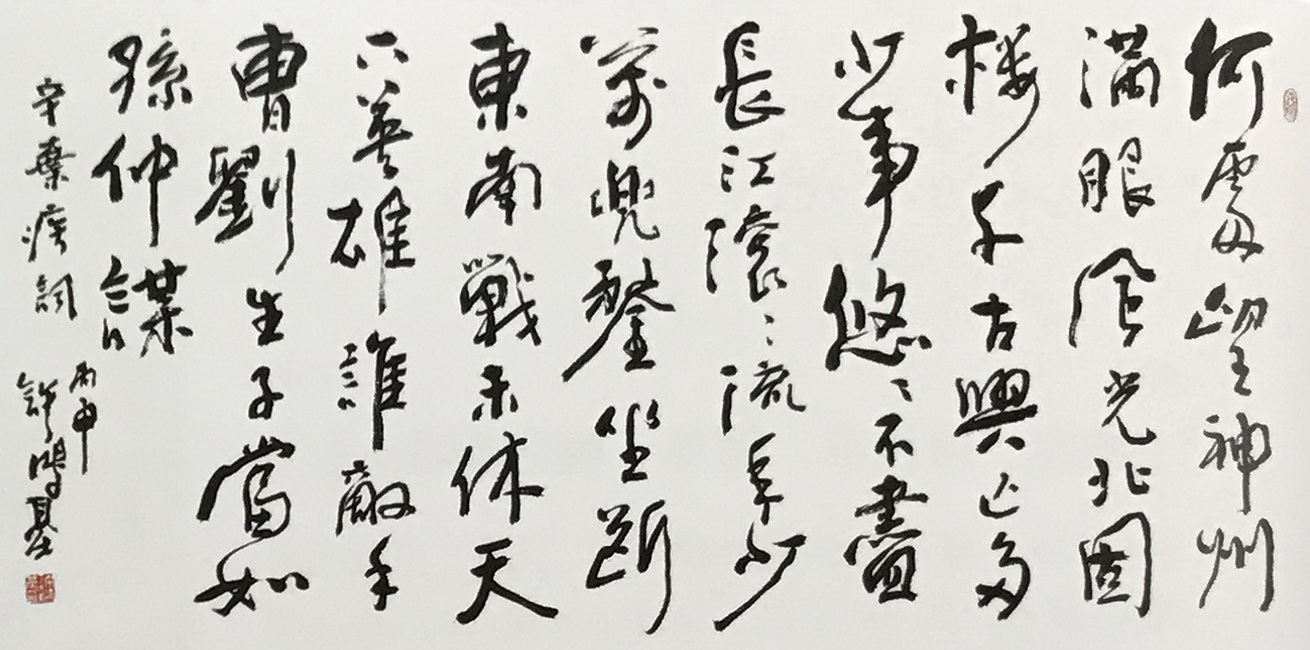 何處望神州
滿眼風光北固
楼千古興亡多
少事悠〻不盡
長江滾〻流年少
萬兜鍪坐斷
東南戰未休天
下英雄誰敵手
曹劉生子當如
孫仲謀
辛棄疾詞
丙申
許鴻基